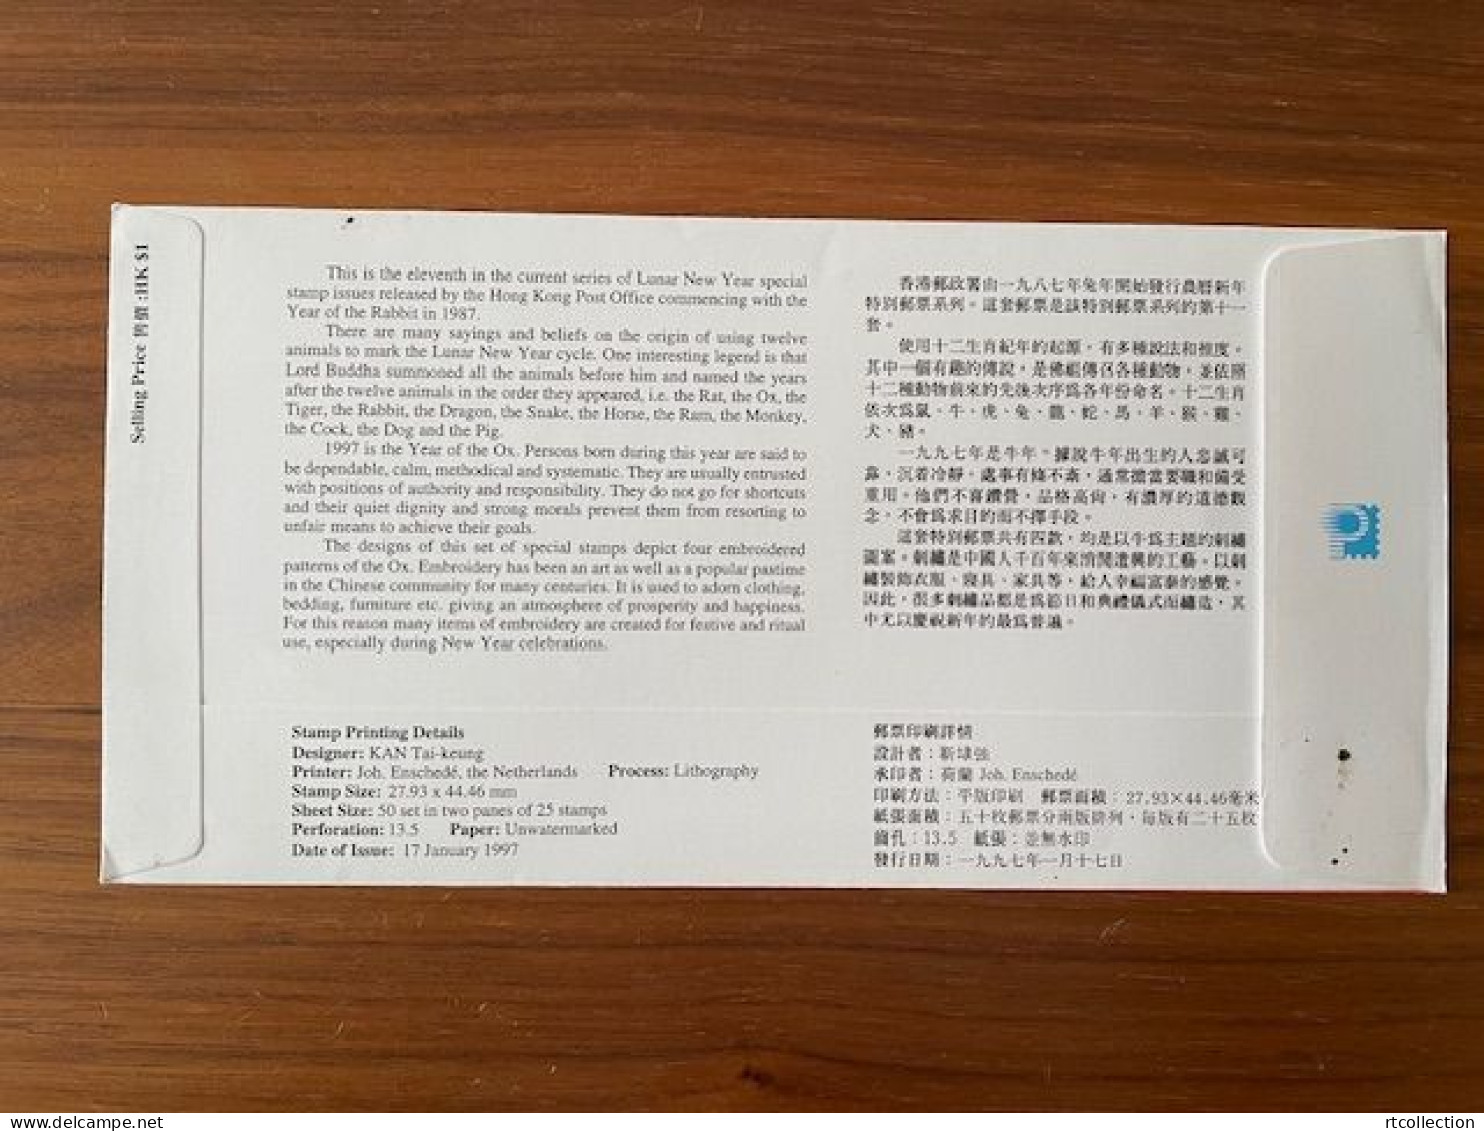 Selling Price 售價 :HK $1
This is the eleventh in the current series of Lunar New Year special
stamp issues released by the Hong Kong Post Office commencing with the
Year of the Rabbit in 1987.
There are many sayings and beliefs on the origin of using twelve
animals to mark the Lunar New Year cycle. One interesting legend is that
Lord Buddha summoned all the animals before him and named the years
after the twelve animals in the order they appeared, i.e. the Rat, the Ox, the
Tiger, the Rabbit, the Dragon, the Snake, the Horse, the Ram, the Monkey,
the Cock, the Dog and the Pig.
1997 is the Year of the Ox. Persons born during this year are said to
be dependable, calm, methodical and systematic. They are usually entrusted
with positions of authority and responsibility. They do not go for shortcuts
and their quiet dignity and strong morals prevent them from resorting to
unfair means to achieve their goals.
The designs of this set of special stamps depict four embroidered
patterns of the Ox. Embroidery has been an art as well as a popular pastime
in the Chinese community for many centuries. It is used to adorn clothing,
bedding, furniture etc. giving an atmosphere of prosperity and happiness.
For this reason many items of embroidery are created for festive and ritual
use, especially during New Year celebrations.
香港郵政署由一九八七年兔年開始發行農曆新年
特別郵票系列。這套郵票是該特別郵票系列的第十一
套。
使用十二生肖紀年的起源，有多種說法和推度。
其中一個有趣的傳說，是佛祖傳召各種動物，並依照
十二種動物前來的先後次序為各年份命名。十二生肖
依次為鼠、牛、虎、兔、龍、蛇、馬、羊、猴、雞、
犬、豬。
一九九七年是牛年。據說牛年出生的人忠誠可
靠，沉着冷靜，處事有條不紊，通常擔當要職和備受
重用。他們不喜鑽營，品格高尚，有濃厚的道德觀
念，不會為求目的而不擇手段。
這套特別郵票共有四款，均是以牛為主題的刺繡
圖案。刺繡是中國人千百年來消閒遣興的工藝。以刺
繡裝飾衣服、寢具、家具等，給人幸福富泰的感覺。
因此，很多刺繡品都是為節日和典禮儀式而繡造，其
中尤以慶祝新年的最為普遍。
Stamp Printing Details
Designer: KAN Tai-keung
Printer: Joh. Enschedé, the Netherlands Process: Lithography
Stamp Size: 27.93 x 44.46 mm
Sheet Size: 50 set in two panes of 25 stamps
Perforation: 13.5 Paper: Unwatermarked
Date of Issue: 17 January 1997
郵票印刷詳情
設計者：靳埭強
承印者：荷蘭 Joh. Enschedé
印刷方法：平版印刷 郵票面積：27.93×44.46毫米
紙張面積：五十枚郵票分兩版排列，每版有二十五枚
齒孔：13.5 紙張：並無水印
發行日期：一九九七年一月十七日
delcampe.net
rtcollection